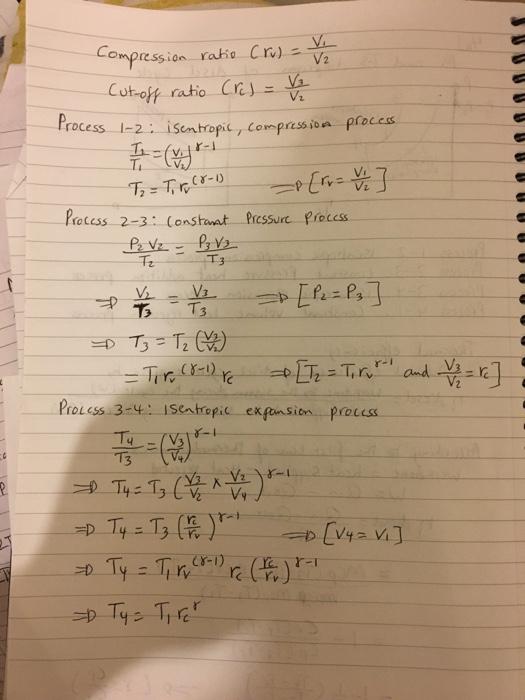 Compression ratio (rv) = V1/V2
Cut-off ratio (rc) = V3/V2
Process 1-2: isentropic, compression process
T2/T1 = (V1/V2)^γ-1
T2 = T1 rv^(γ-1) ⇒ [rv = V1/V2]
Process 2-3: Constanat Pressure Process
P2 V2/T2 = P3 V3/T3
⇒ V2/T3 = V3/T3 ⇒ [P2 = P3]
⇒ T3 = T2 (V3/V2)
= T1 rv^(γ-1) rc ⇒ [T2 = T1 rv^γ-1 and V3/V2 = rc]
Process 3-4: Isentropic expansion process
T4/T3 = (V3/V4)^γ-1
⇒ T4 = T3 (V3/V2 × V2/V4)^γ-1
⇒ T4 = T3 (rc/rv)^γ-1 ⇒ [V4 = V1]
⇒ T4 = T1 rv^(γ-1) rc (rc/rv)^γ-1
⇒ T4 = T1 rc^γ